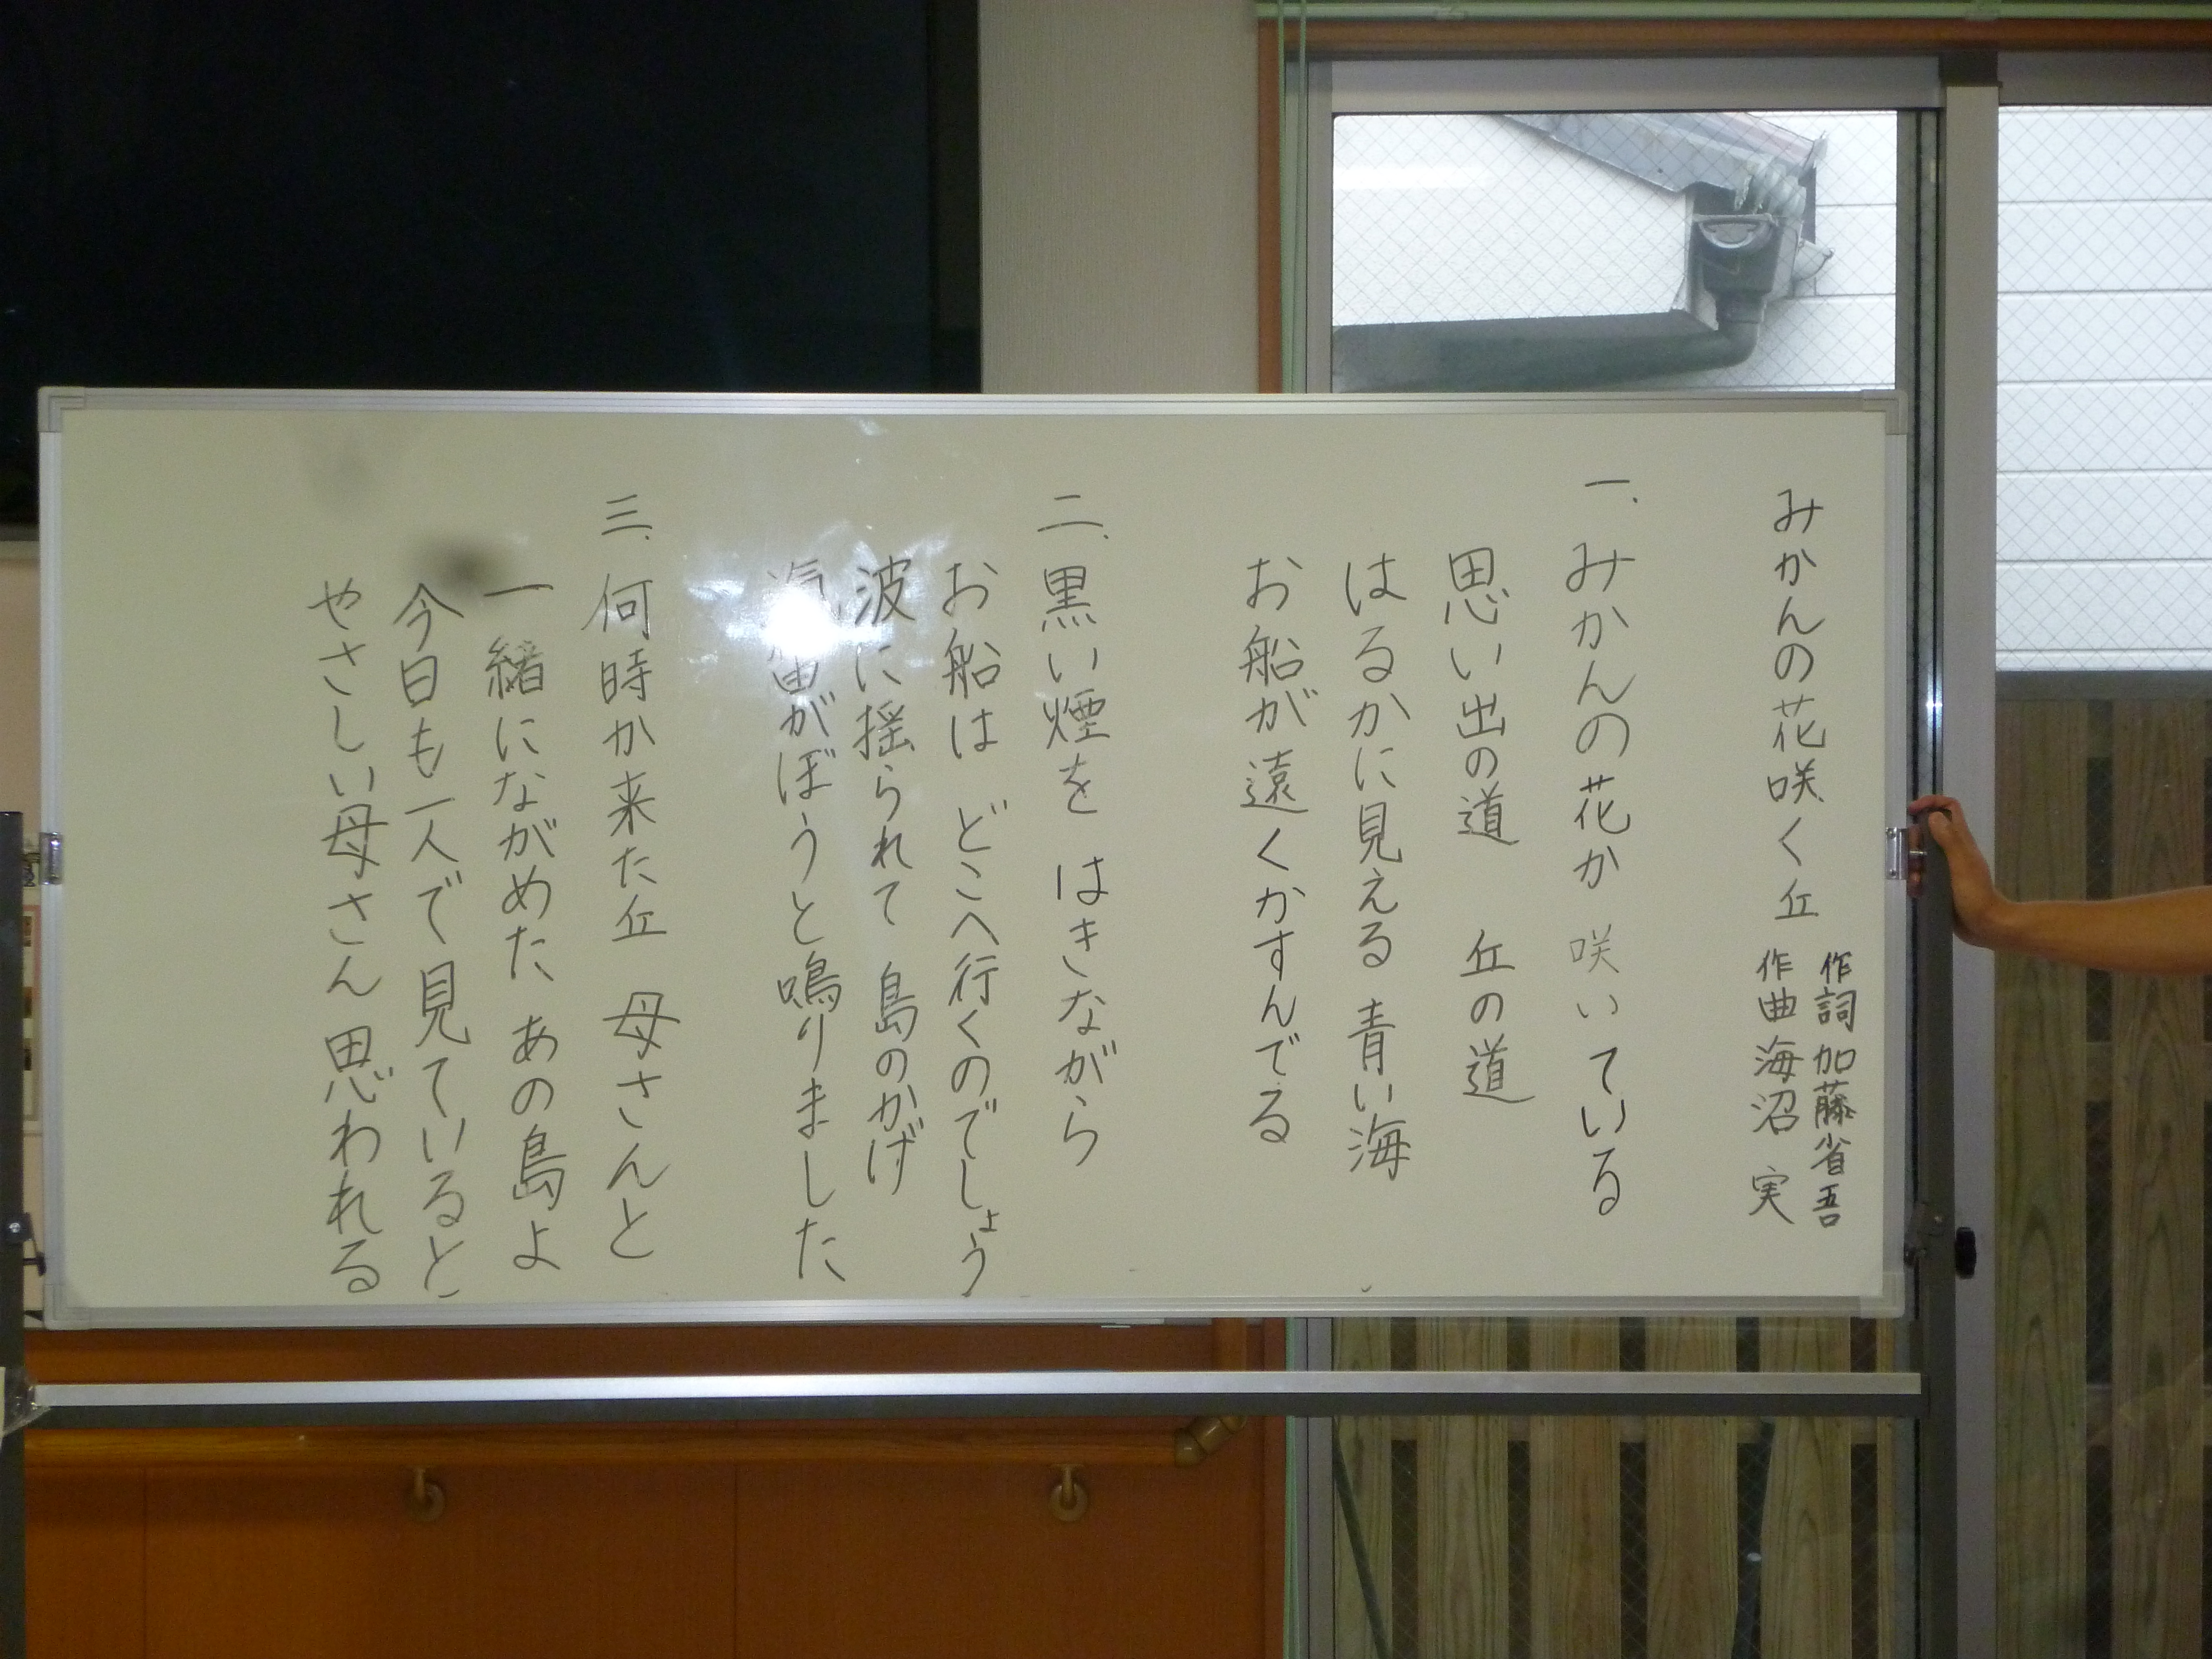 みかんの花咲く丘
作詞 加藤省吾
作曲 海沼 実
一、みかんの花か 咲いている
思い出の道 丘の道
はるかに見える 青い海
お船が遠くかすんでる
二、黒い煙を はきながら
お船は どこへ行くのでしょう
波に揺られて 島のかげ
汽笛がぼうと鳴りました
三、何時か来た丘 母さんと
一緒にながめた あの島よ
今日も一人で見ていると
やさしい母さん 思われる